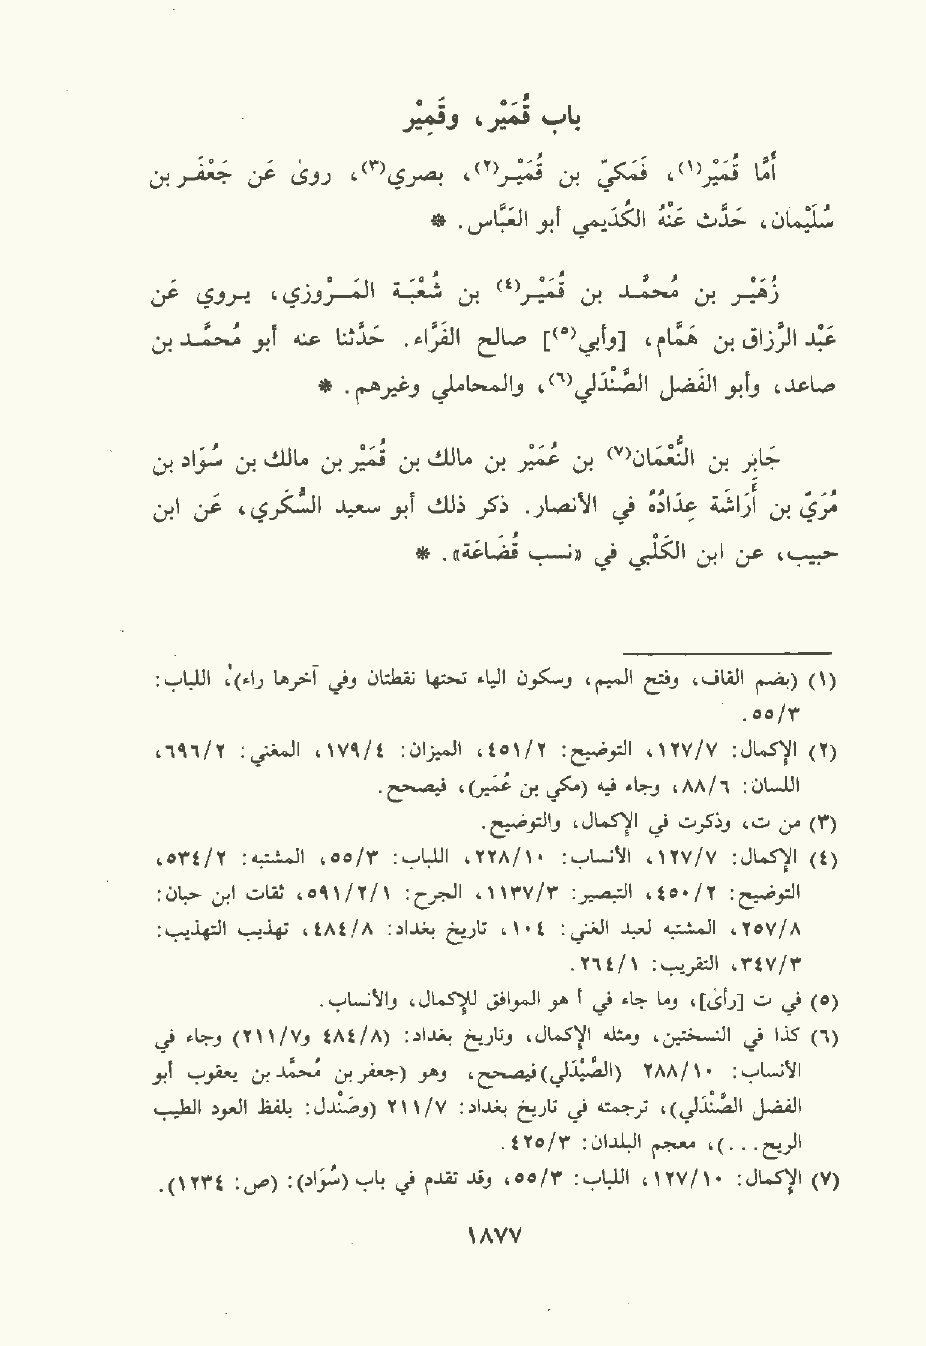 باب قُمَيْر، وقَمِيْر
أمَّا قُمَيْر(١)، فَمَكيّ بن قُمَيْر(٢)، بصري(٣)، روىٰ عَن جَعْفَر بن
سُلَيْمان، حَدَّث عَنْهُ الكُدَيمي أبو العَبَّاس. *
زُهَيْر بن محمَّد بن قُمَيْر(٤) بن شُعْبَة المَرْوزي، يروي عن
عَبْد الرزاق بن هَمَّام، [وأبي(٥)] صالح الفَرَّاء. حَدَّثنا عنه أبو مُحمَّد بن
صاعد، وأبو الفَضل الصَّنْدَلي(٦)، والمحاملي وغيرهم. *
جَابر بن النُّعْمَان(٧) بن عُمَيْر بن مالك بن قُمَيْر بن مالك بن سُوَاد بن
مُرَيّ بن أَرَاشَة عِدَادُهُ في الأنصار. ذكر ذلك أبو سعيد السُّكَّري، عَن ابن
حبيب، عن ابن الكَلْبي في «نسب قُضَاعَة». *
(١) (بضم القاف، وفتح الميم، وسكون الياء تحتها نقطتان وفي آخرها راء)، اللباب:
٥٥/٣.
(٢) الإكمال: ١٢٧/٧، التوضيح: ٤٥١/٢، الميزان: ١٧٩/٤، المغني: ٦٩٦/٢،
اللسان: ٨٨/٦، وجاء فيه (مكي بن عُمَير)، فيصحح.
(٣) من ت، وذكرت في الإكمال، والتوضيح.
(٤) الإكمال: ١٢٧/٧، الأنساب: ٢٢٨/١٠، اللباب: ٥٥/٣، المشتبه: ٥٣٤/٢،
التوضيح: ٤٥٠/٢، التبصير: ١١٣٧/٣، الجرح: ٥٩١/٢/١، ثقات ابن حبان:
٢٥٧/٨، المشتبه لعبد الغني: ١٠٤، تاريخ بغداد: ٤٨٤/٨، تهذيب التهذيب:
٣٤٧/٣، التقريب: ٢٦٤/١.
(٥) في ت [رأىٰ]، وما جاء في أ هو الموافق للإكمال، والأنساب.
(٦) كذا في النسختين، ومثله الإكمال، وتاريخ بغداد: (٤٨٤/٨ و٢١١/٧) وجاء في
الأنساب: ٢٨٨/١٠ (الصَّيْدَلي) فيصحح، وهو (جعفر بن محمَّد بن يعقوب أبو
الفضل الصَّنْدَلي)، ترجمته في تاريخ بغداد: ٢١١/٧ (وصَنْدل: بلفظ العود الطيب
الريح...)، معجم البلدان: ٤٢٥/٣.
(٧) الإكمال: ١٢٧/١٠، اللباب: ٥٥/٣، وقد تقدم في باب (سُوَاد): (ص: ١٢٣٤).
١٨٧٧